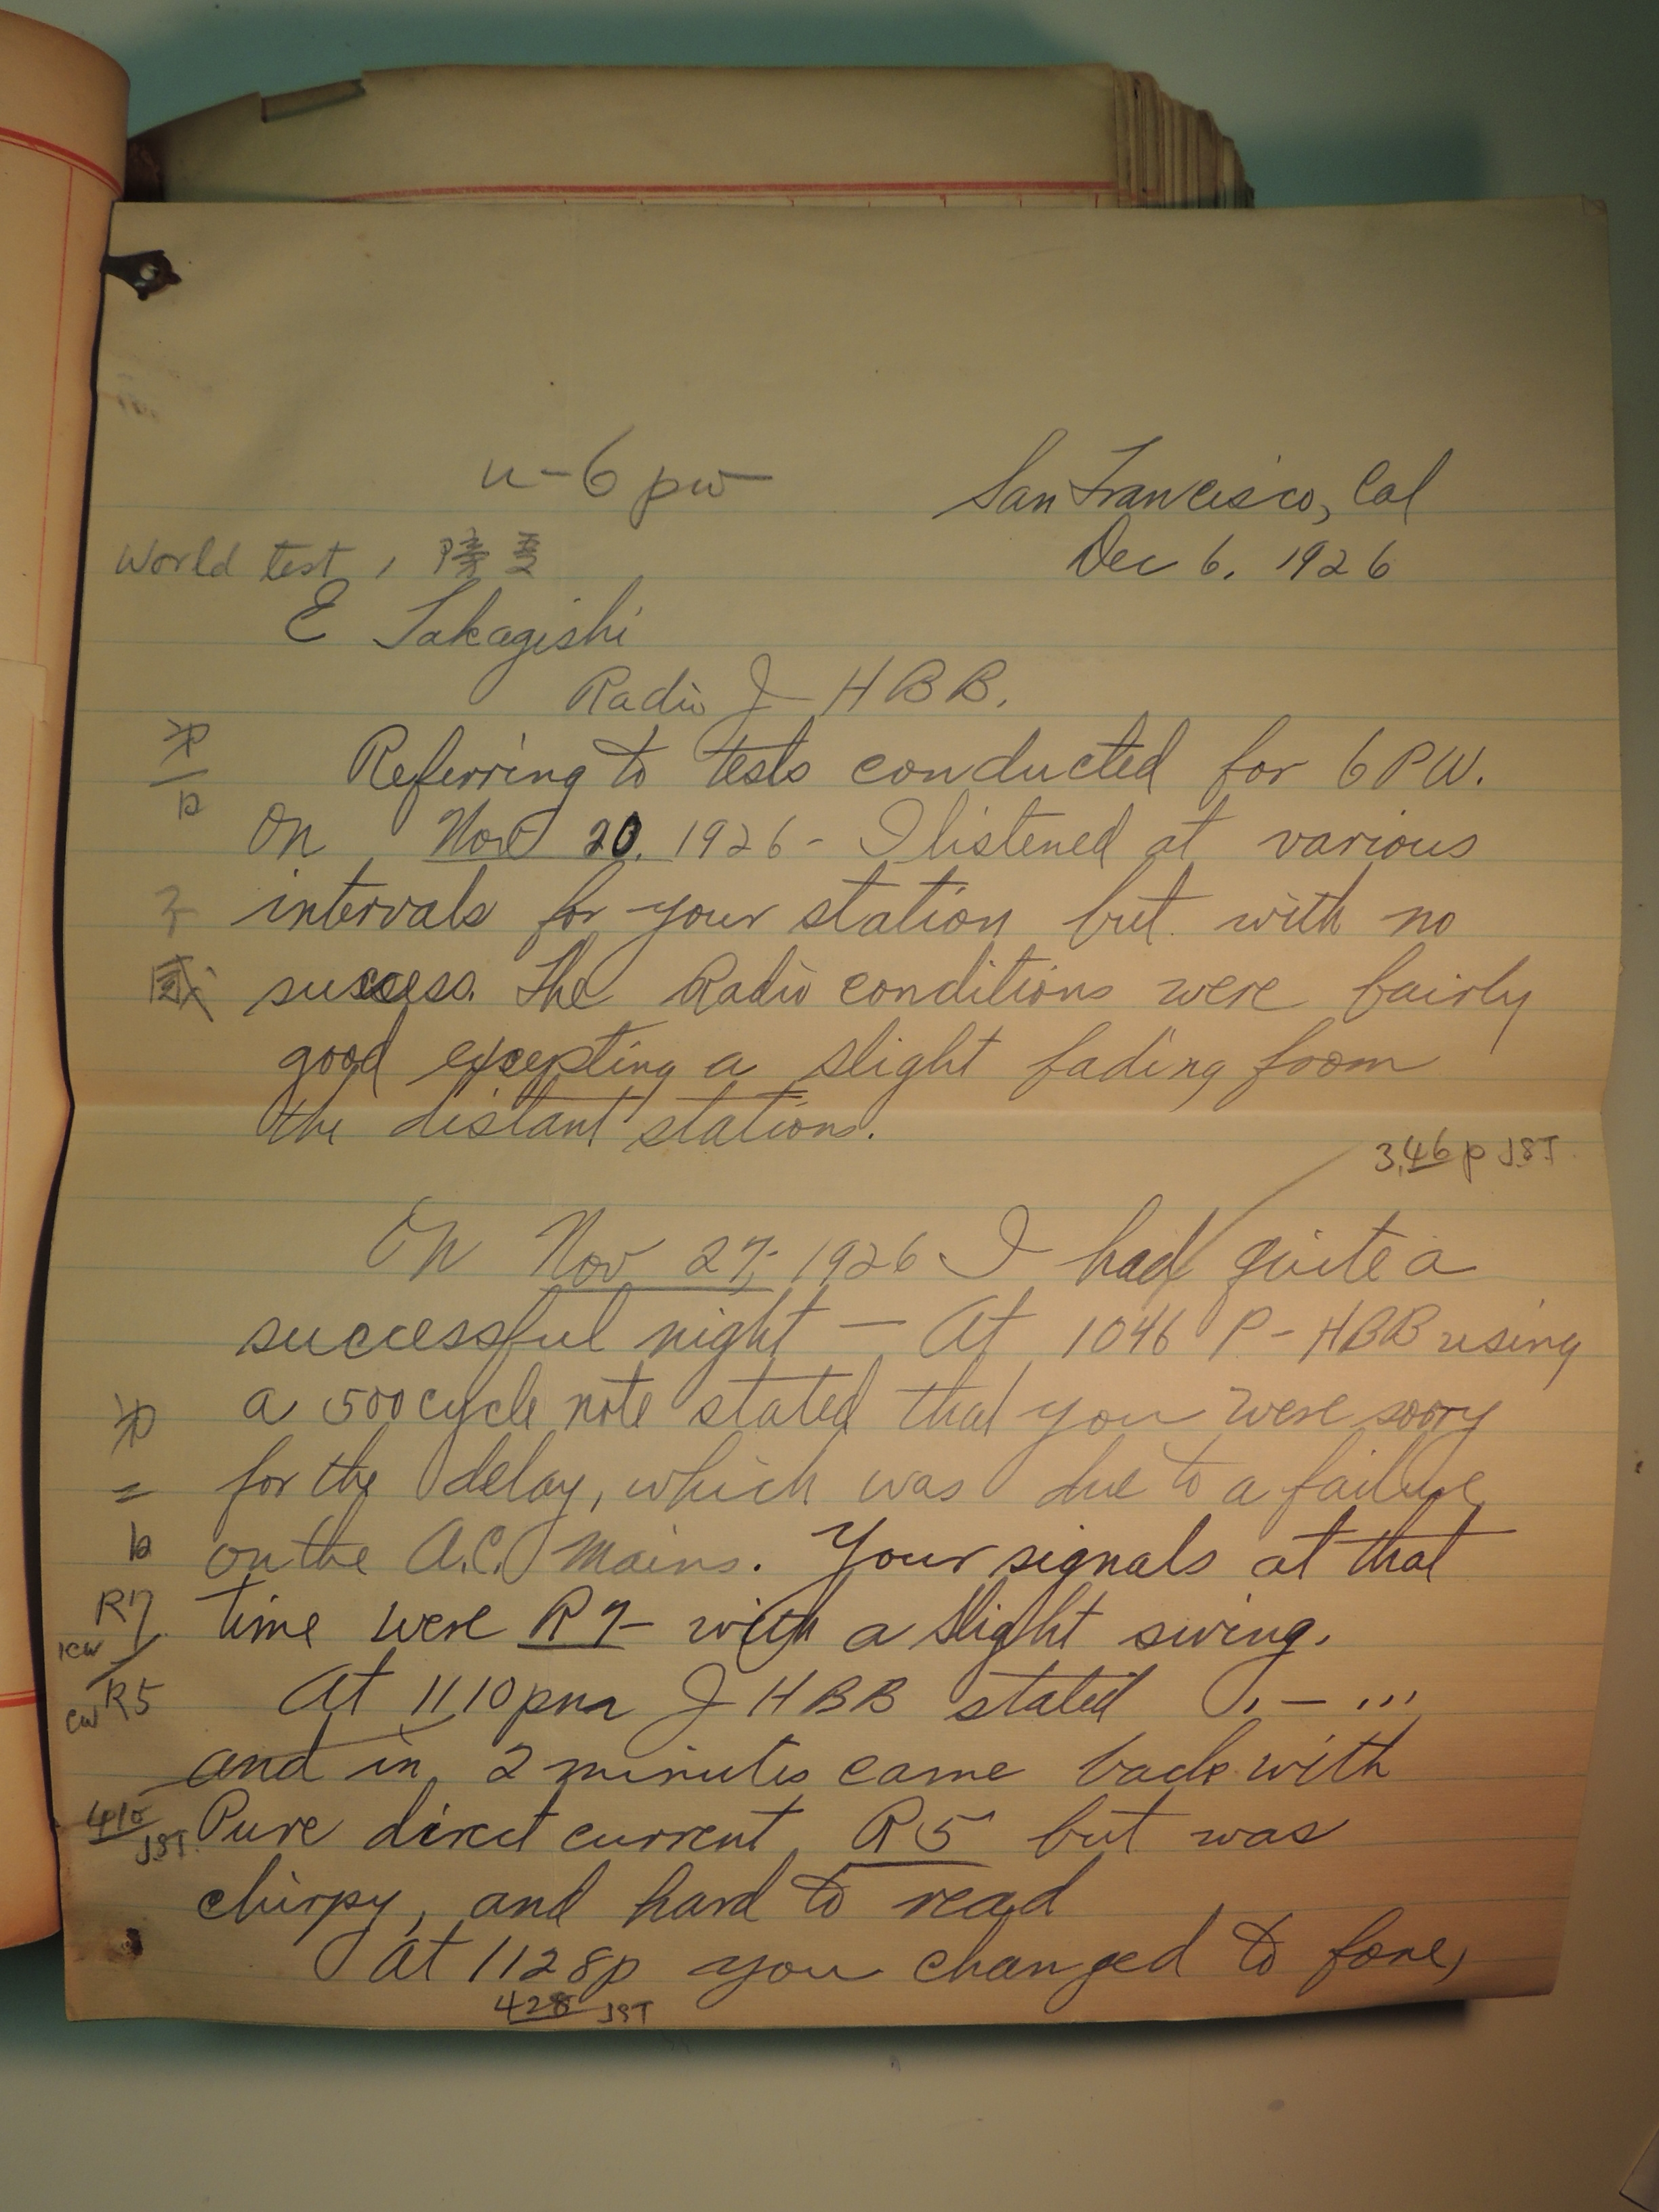 u-6pw
San Francisco, Cal
World test,
Dec 6, 1926
E Takagishi
Radio J-HBB.
Referring to tests conducted for 6PW.
On Nov 20. 1926 - I listened at various
intervals for your station but with no
不
感 success. The Radio conditions were fairly
good excepting a slight fading from
the distant stations.
3,46 p JST
On Nov 27, 1926 I had quite a
successful night — At 1046 P - HBB using
a 500 cycle note stated that you were sorry
for the delay, which was due to a failure
on the A.C. Mains. Your signals at that
R7 time were R7 - with a slight swing.
ICW
CW R5 At 1110 pm J HBB stated . - . . .
and in 2 minutes came back with
410 JST Pure direct current R5 but was
chirpy, and hard to read
At 1128p you changed to fone,
428 JST